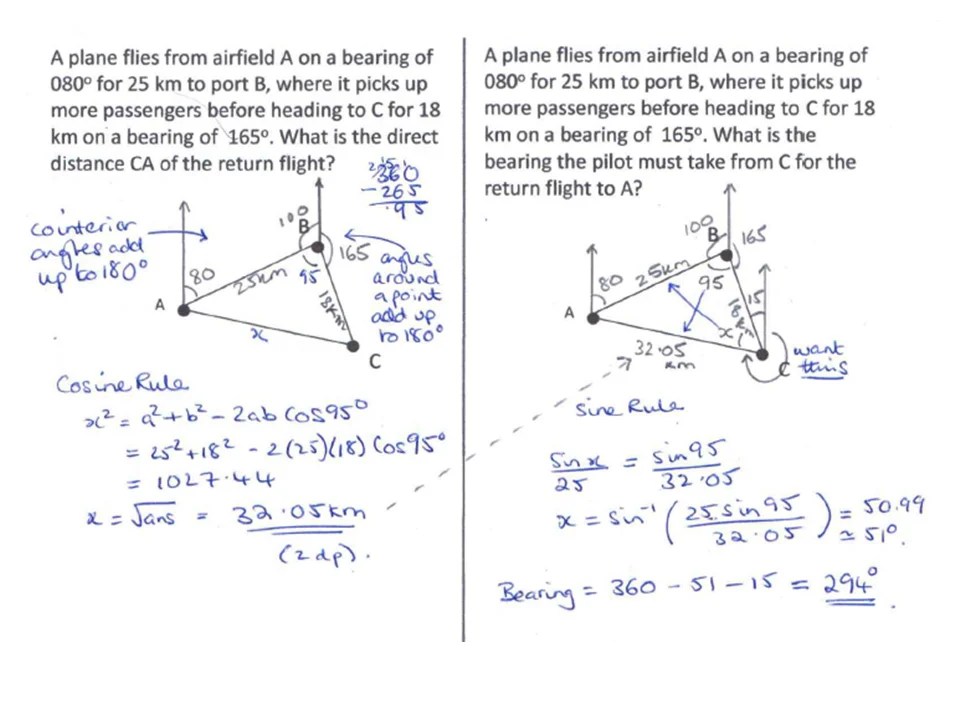 A plane flies from airfield A on a bearing of
080º for 25 km to port B, where it picks up
more passengers before heading to C for 18
km on a bearing of 165º. What is the direct
distance CA of the return flight?
360
-265
95
cointerior
angles add
up to 180°
100
B
165
angles
around
a point
add up
to 180°
80
25km
95
18km
A
x
C
Cosine Rule
x² = a² + b² - 2ab Cos95°
= 25² + 18² - 2(25)(18) Cos95°
= 1027.44
x = √ans = 32.05km
(2dp).
A plane flies from airfield A on a bearing of
080º for 25 km to port B, where it picks up
more passengers before heading to C for 18
km on a bearing of 165º. What is the
bearing the pilot must take from C for the
return flight to A?
100
B
165
80
25km
95
18km
15
A
x
32.05
km
C
want
this
Sine Rule
Sinx/25 = sin95/32.05
x = sin⁻¹ (25.sin95/32.05) = 50.99
≃ 51°.
Bearing = 360 - 51 - 15 = 294°.